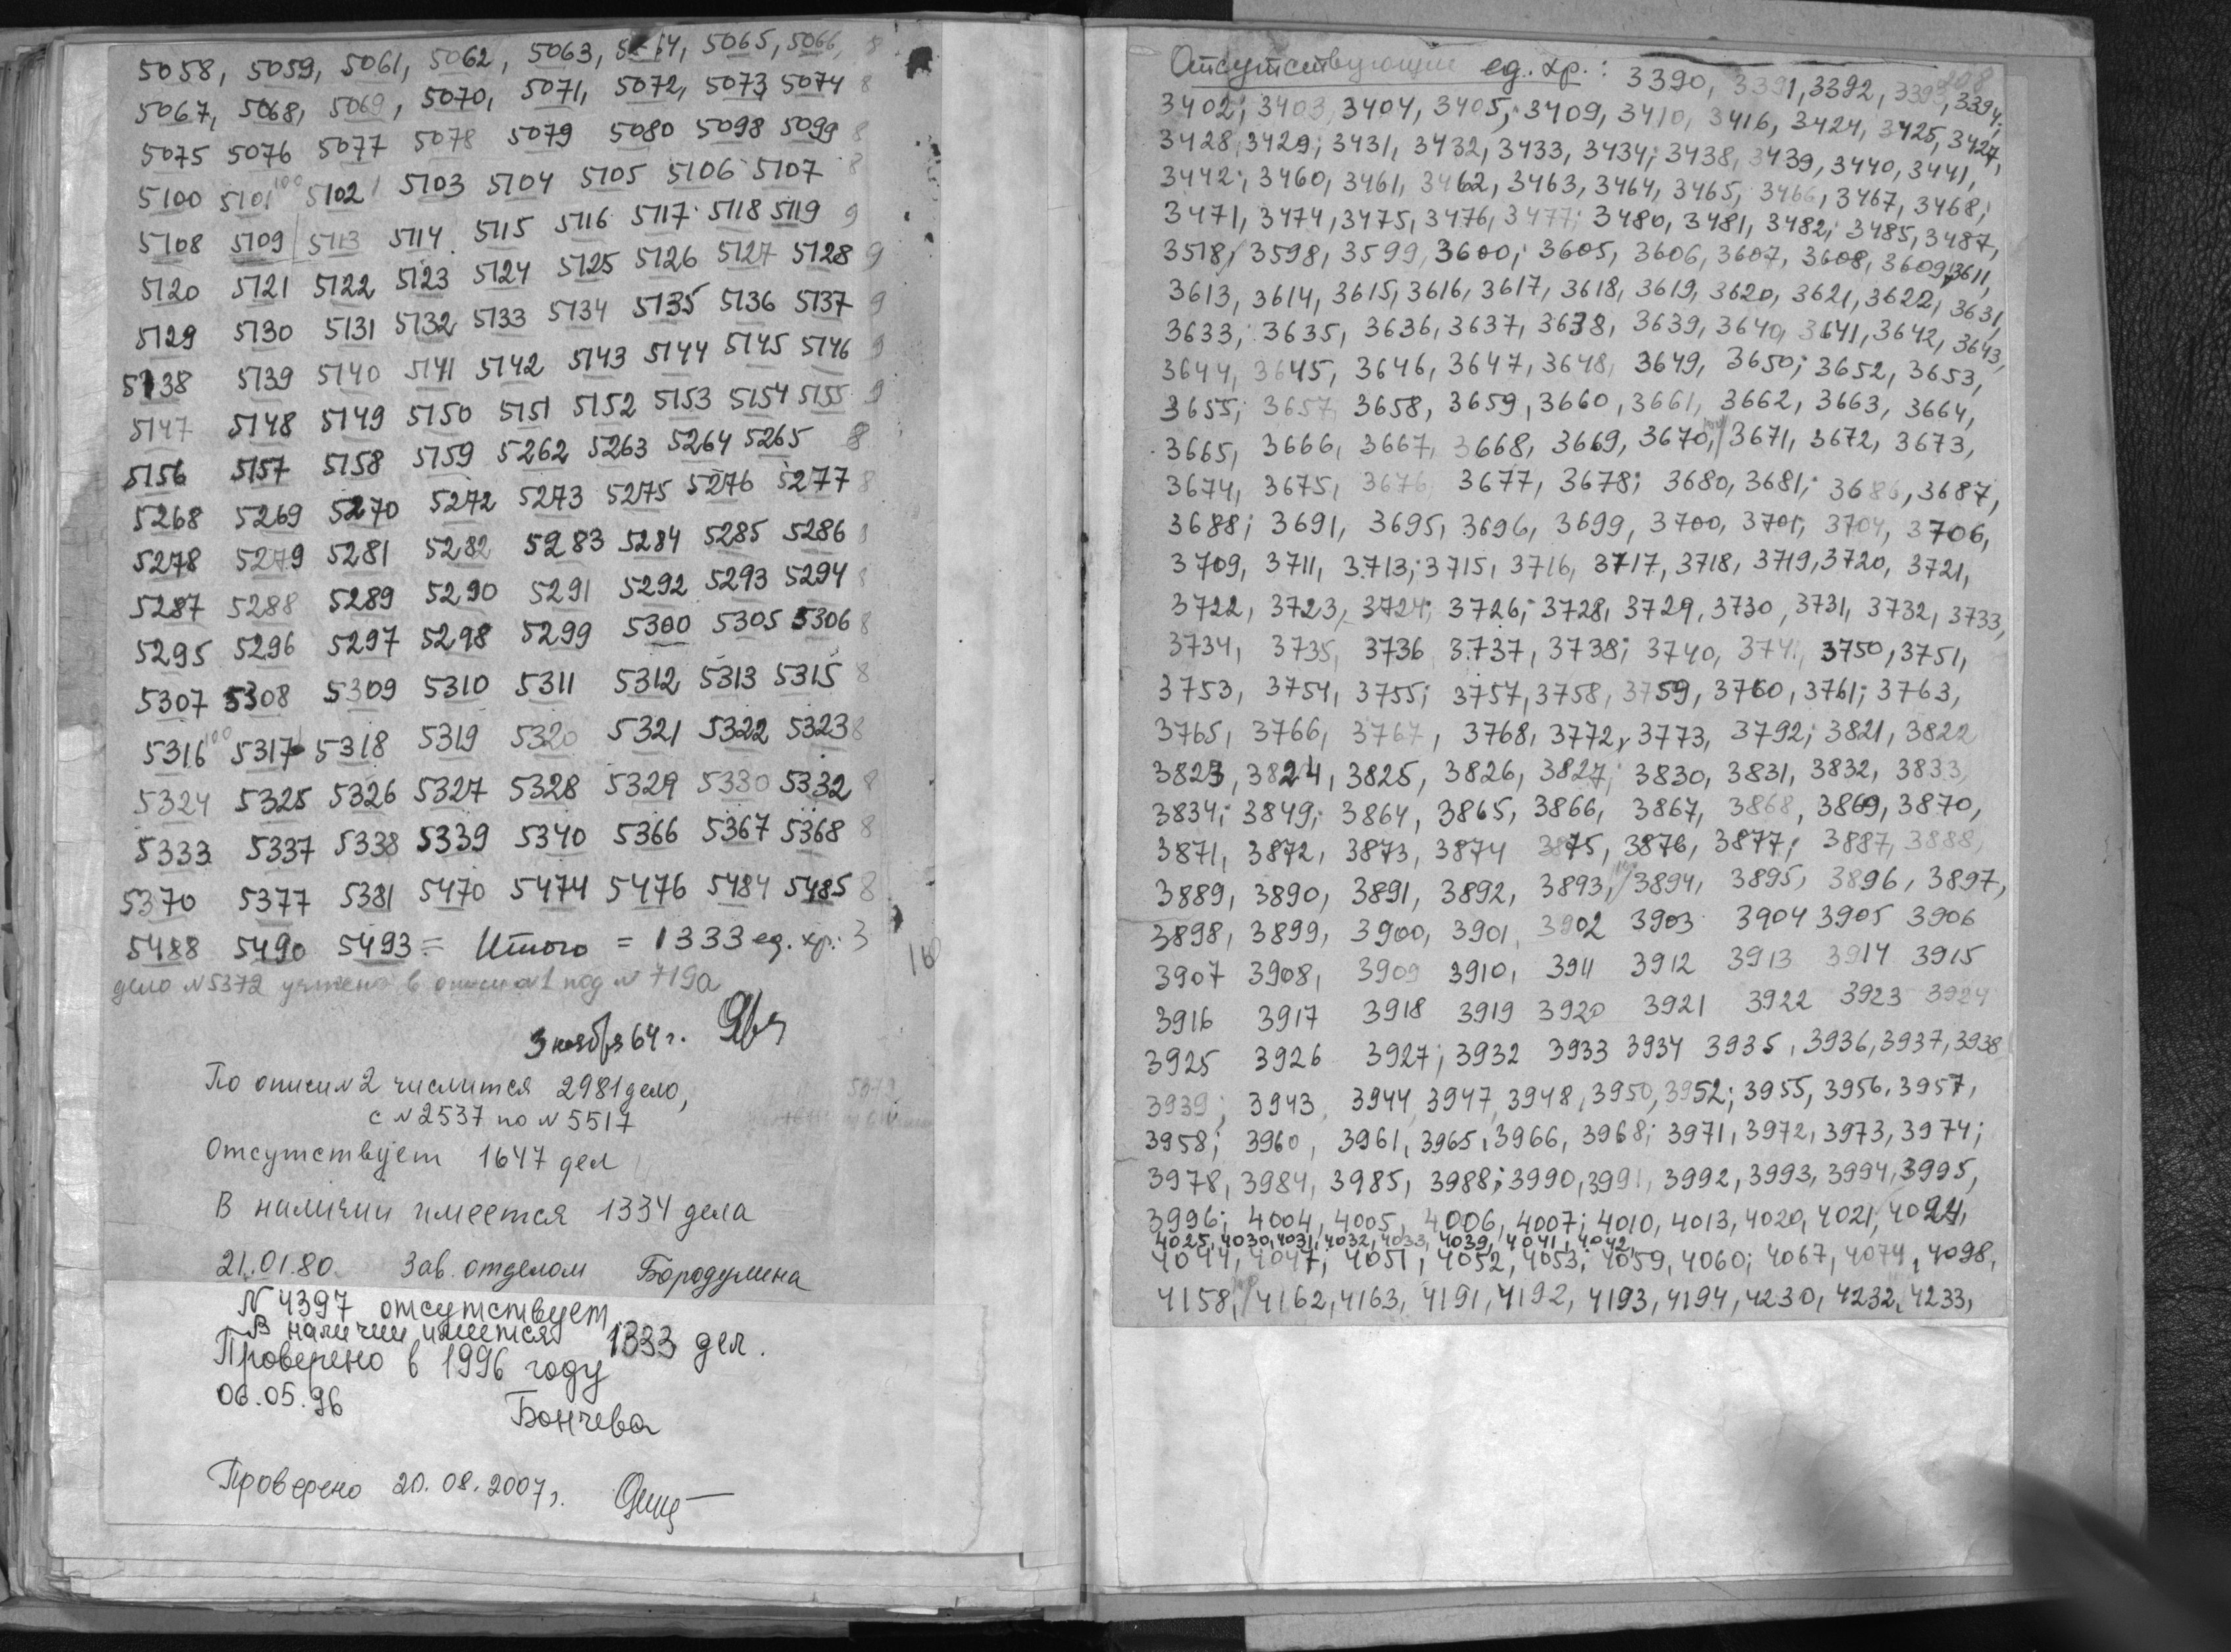 5058, 5059, 5061, 5062, 5063, 5064, 5065, 5066, 8
5067, 5068, 5069, 5070, 5071, 5072, 5073, 5074 8
5075 5076 5077 5078 5079 5080 5098 5099 8
5100 5101 100 5102 5103 5104 5105 5106 5107 8
5108 5109 5113 5114 5115 5116 5117 5118 5119 9
5120 5121 5122 5123 5124 5125 5126 5127 5128 9
5129 5130 5131 5132 5133 5134 5135 5136 5137 9
5138 5139 5140 5141 5142 5143 5144 5145 5146 9
5147 5148 5149 5150 5151 5152 5153 5154 5155 9
5156 5157 5158 5159 5262 5263 5264 5265 8
5268 5269 5270 5272 5273 5275 5276 5277 8
5278 5279 5281 5282 5283 5284 5285 5286 8
5287 5288 5289 5290 5291 5292 5293 5294 8
5295 5296 5297 5298 5299 5300 5305 5306 8
5307 5308 5309 5310 5311 5312 5313 5315 8
5316 100 5317 5318 5319 5320 5321 5322 5323 8
5324 5325 5326 5327 5328 5329 5330 5332 8
5333 5337 5338 5339 5340 5366 5367 5368 8
5370 5377 5381 5470 5474 5476 5484 5485 8
5488 5490 5493 = Итого = 1333 ед. хр.: 3
дело N 5372 учтено в описи N1 под N 719а
3 ноября 64 г.
По описи N 2 числится 2981 дело,
с N 2537 по N 5517
Отсутствует 1647 дел
В наличии имеется 1334 дела
21.01.80. Зав. отделом Бородулина
N 4397 отсутствует.
В наличии имеется 1333 дел.
Проверено в 1996 году
06.05.96 Бончева
Проверено 20.08.2007 г.
Отсутствующие ед. хр.: 3390, 3391, 3392, 3393, 3394;
3402; 3403, 3404, 3405; 3409, 3410, 3416, 3424, 3425, 3427,
3428, 3429; 3431, 3432, 3433, 3434; 3438, 3439, 3440, 3441,
3442; 3460, 3461, 3462, 3463, 3464, 3465, 3466, 3467, 3468;
3471, 3474, 3475, 3476, 3477; 3480, 3481, 3482; 3485, 3487,
3518; 3598, 3599, 3600; 3605, 3606, 3607, 3608, 3609, 3611,
3613, 3614, 3615, 3616, 3617, 3618, 3619, 3620, 3621, 3622, 3631,
3633; 3635, 3636, 3637, 3638, 3639, 3640, 3641, 3642, 3643,
3644, 3645, 3646, 3647, 3648, 3649, 3650; 3652, 3653,
3655; 3657, 3658, 3659, 3660, 3661, 3662, 3663, 3664,
3665, 3666, 3667, 3668, 3669, 3670, 3671, 3672, 3673,
3674, 3675, 3676, 3677, 3678; 3680, 3681; 3686, 3687,
3688; 3691, 3695, 3696, 3699, 3700, 3701; 3704, 3706,
3709, 3711, 3713; 3715, 3716, 3717, 3718, 3719, 3720, 3721,
3722, 3723, 3724; 3726; 3728, 3729, 3730, 3731, 3732, 3733,
3734, 3735, 3736 3737, 3738; 3740, 3750, 3751,
3753, 3754, 3755; 3757, 3758, 3759, 3760, 3761; 3763,
3765, 3766, 3767, 3768, 3772, 3773, 3792; 3821, 3822
3823, 3824, 3825, 3826, 3827; 3830, 3831, 3832, 3833,
3834; 3849; 3864, 3865, 3866, 3867, 3868, 3869, 3870,
3871, 3872, 3873, 3874 3875, 3876, 3877; 3887, 3888,
3889, 3890, 3891, 3892, 3893, 3894, 3895, 3896, 3897,
3898, 3899, 3900, 3901, 3902 3903 3904 3905 3906
3907 3908, 3909 3910, 3911 3912 3913 3914 3915
3916 3917 3918 3919 3920 3921 3922 3923 3924
3925 3926 3927; 3932 3933 3934 3935, 3936, 3937, 3938
3939; 3943, 3944, 3947, 3948, 3950, 3952; 3955, 3956, 3957,
3958; 3960, 3961, 3965, 3966, 3968; 3971, 3972, 3973, 3974;
3978, 3984, 3985, 3988; 3990, 3991, 3992, 3993, 3994, 3995,
3996; 4004, 4005, 4006, 4007; 4010, 4013, 4020, 4021, 4024,
4025, 4030, 4031, 4032, 4033, 4039, 4041, 4042,
4044, 4047; 4051, 4052, 4053; 4059, 4060; 4067, 4074, 4098,
4158, 4162, 4163, 4191, 4192, 4193, 4194, 4230, 4232, 4233,